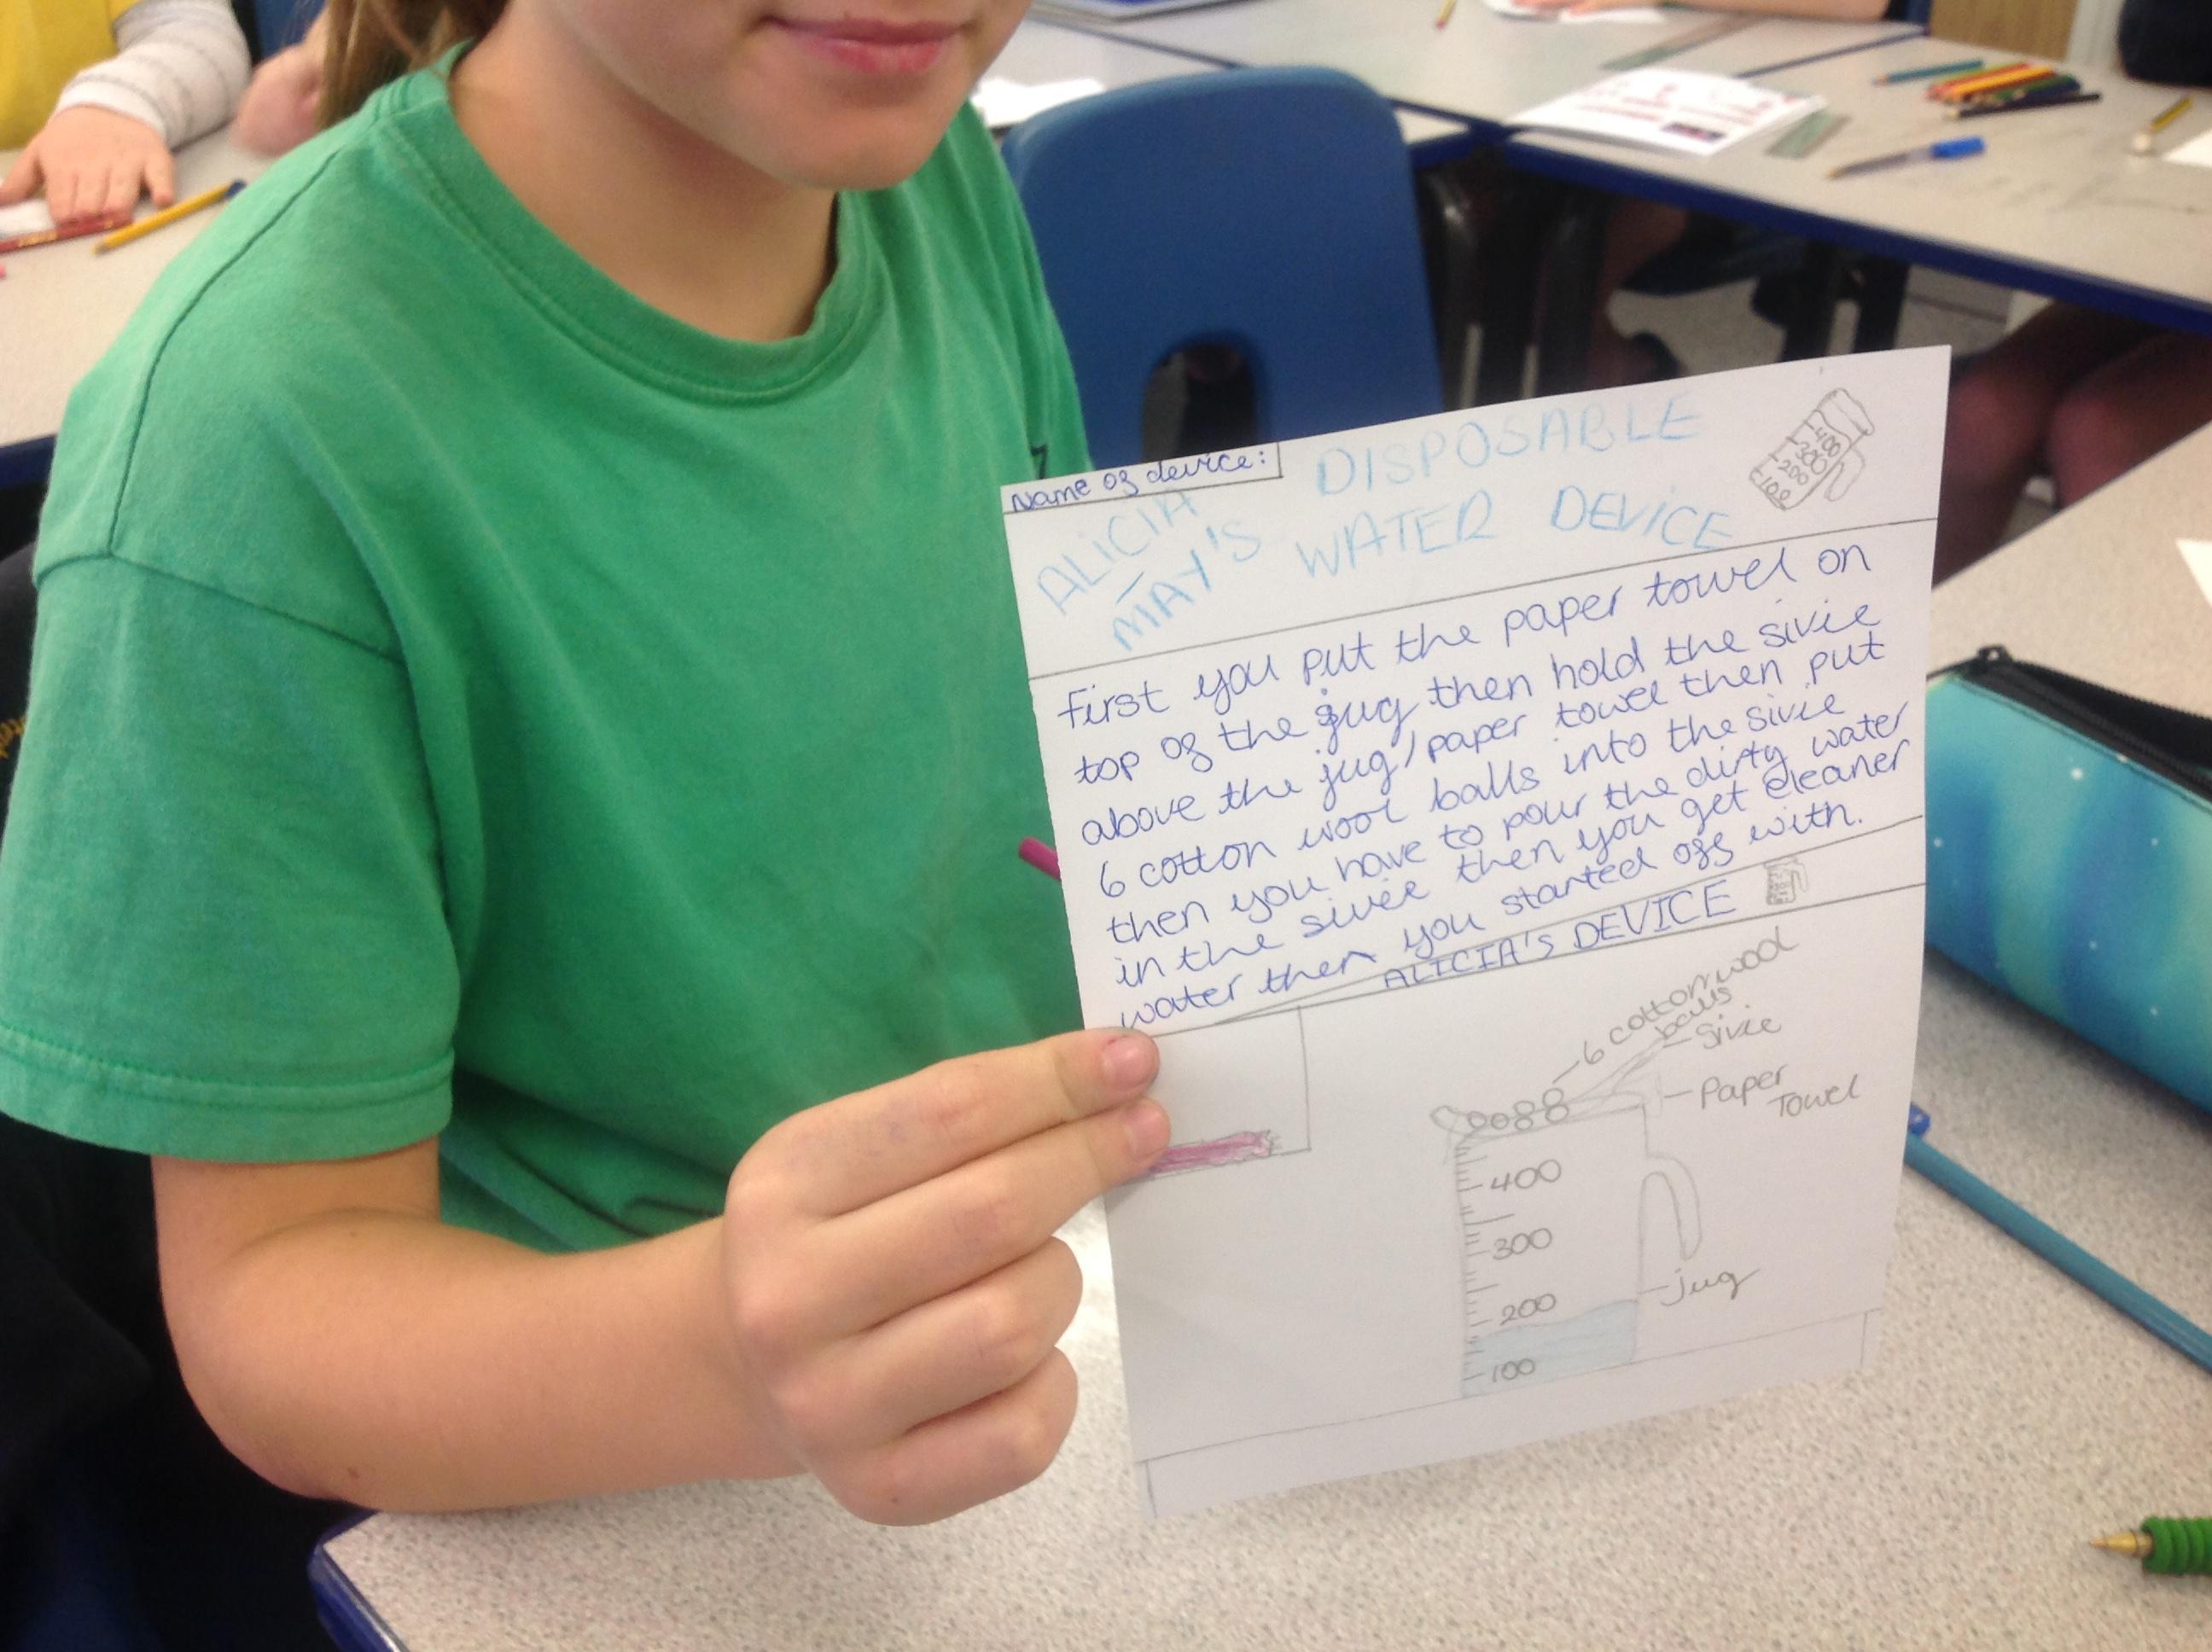 Name of device:
ALICIA MAY'S
DISPOSABLE
WATER DEVICE
400
300
200
100
First you put the paper towel on
top of the jug then hold the sivie
above the jug/paper towel then put
6 cotton wool balls into the sivie
then you have to pour the dirty water
in the sivie then you get cleaner
water then you started off with.
ALICIA'S DEVICE
6 cotton wool
balls
sivie
Paper
Towel
400
300
200
jug
100